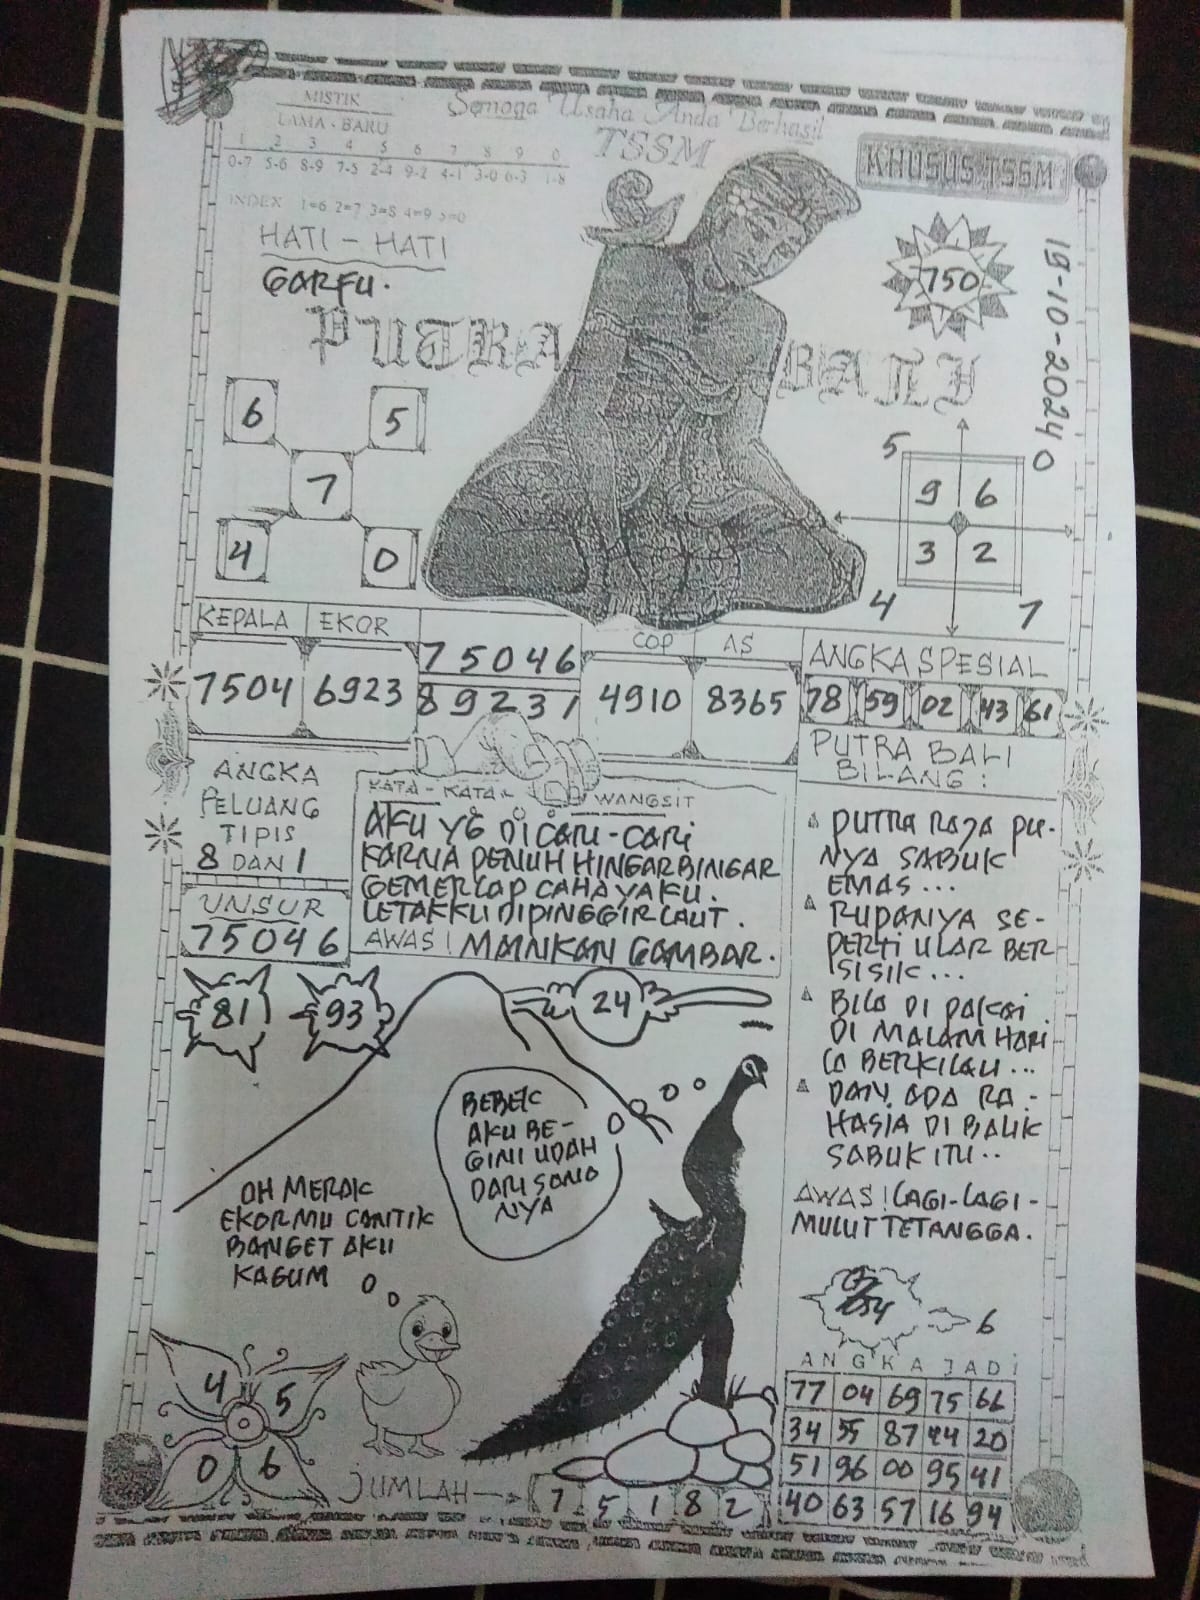 MISTIK
LAMA - BARU
1 2 3 4 5 6 7 8 9 0
0-7 5-6 8-9 7-5 2-4 9-2 4-1 3-0 6-3 1-8
INDEX 1=6 2=7 3=8 4=9 5=0
Semoga Usaha Anda Berhasil
TSSM
KHUSUS TSSM
HATI - HATI
GARFU.
750
19-10-2024
PUTRA BALI
6 5
7
4 0
5 0
9 6
3 2
4 7
KEPALA EKOR
7504 6923
75046
89231
COP AS
4910 8365
ANGKA SPESIAL
78 59 02 43 61
ANGKA
PELUANG
TIPIS
8 DAN 1
UNSUR
75046
KATA - KATA WANGSIT
AKU YG DICARI-CARI
KARNA PENUH HINGARBINGAR
GEMERLAP CAHAYAKU.
LETAKKU DIPINGGIR LAUT.
AWAS! MAINKAN GAMBAR.
PUTRA BALI
BILANG:
PUTRA RAJA PU-
NYA SABUK
EMAS...
RUPANYA SE-
PERTI ULAR BER
SISIK...
BILA DI PAKAI
DI MALAM HARI
IA BERKILAU...
DAN ADA RA-
HASIA DI BALIK
SABUK ITU..
AWAS! LAGI-LAGI-
MULUT TETANGGA.
81 93 24
BEBEK
AKU BE-
GINI UDAH
DARI SONO
NYA
OH MERAK
EKORMU CANTIK
BANGET AKU
KAGUM
6
4 5
0 6
JUMLAH
7 5 1 8 2
ANGKA JADI
77 04 69 75 66
34 55 87 44 20
51 96 00 95 41
40 63 57 16 94